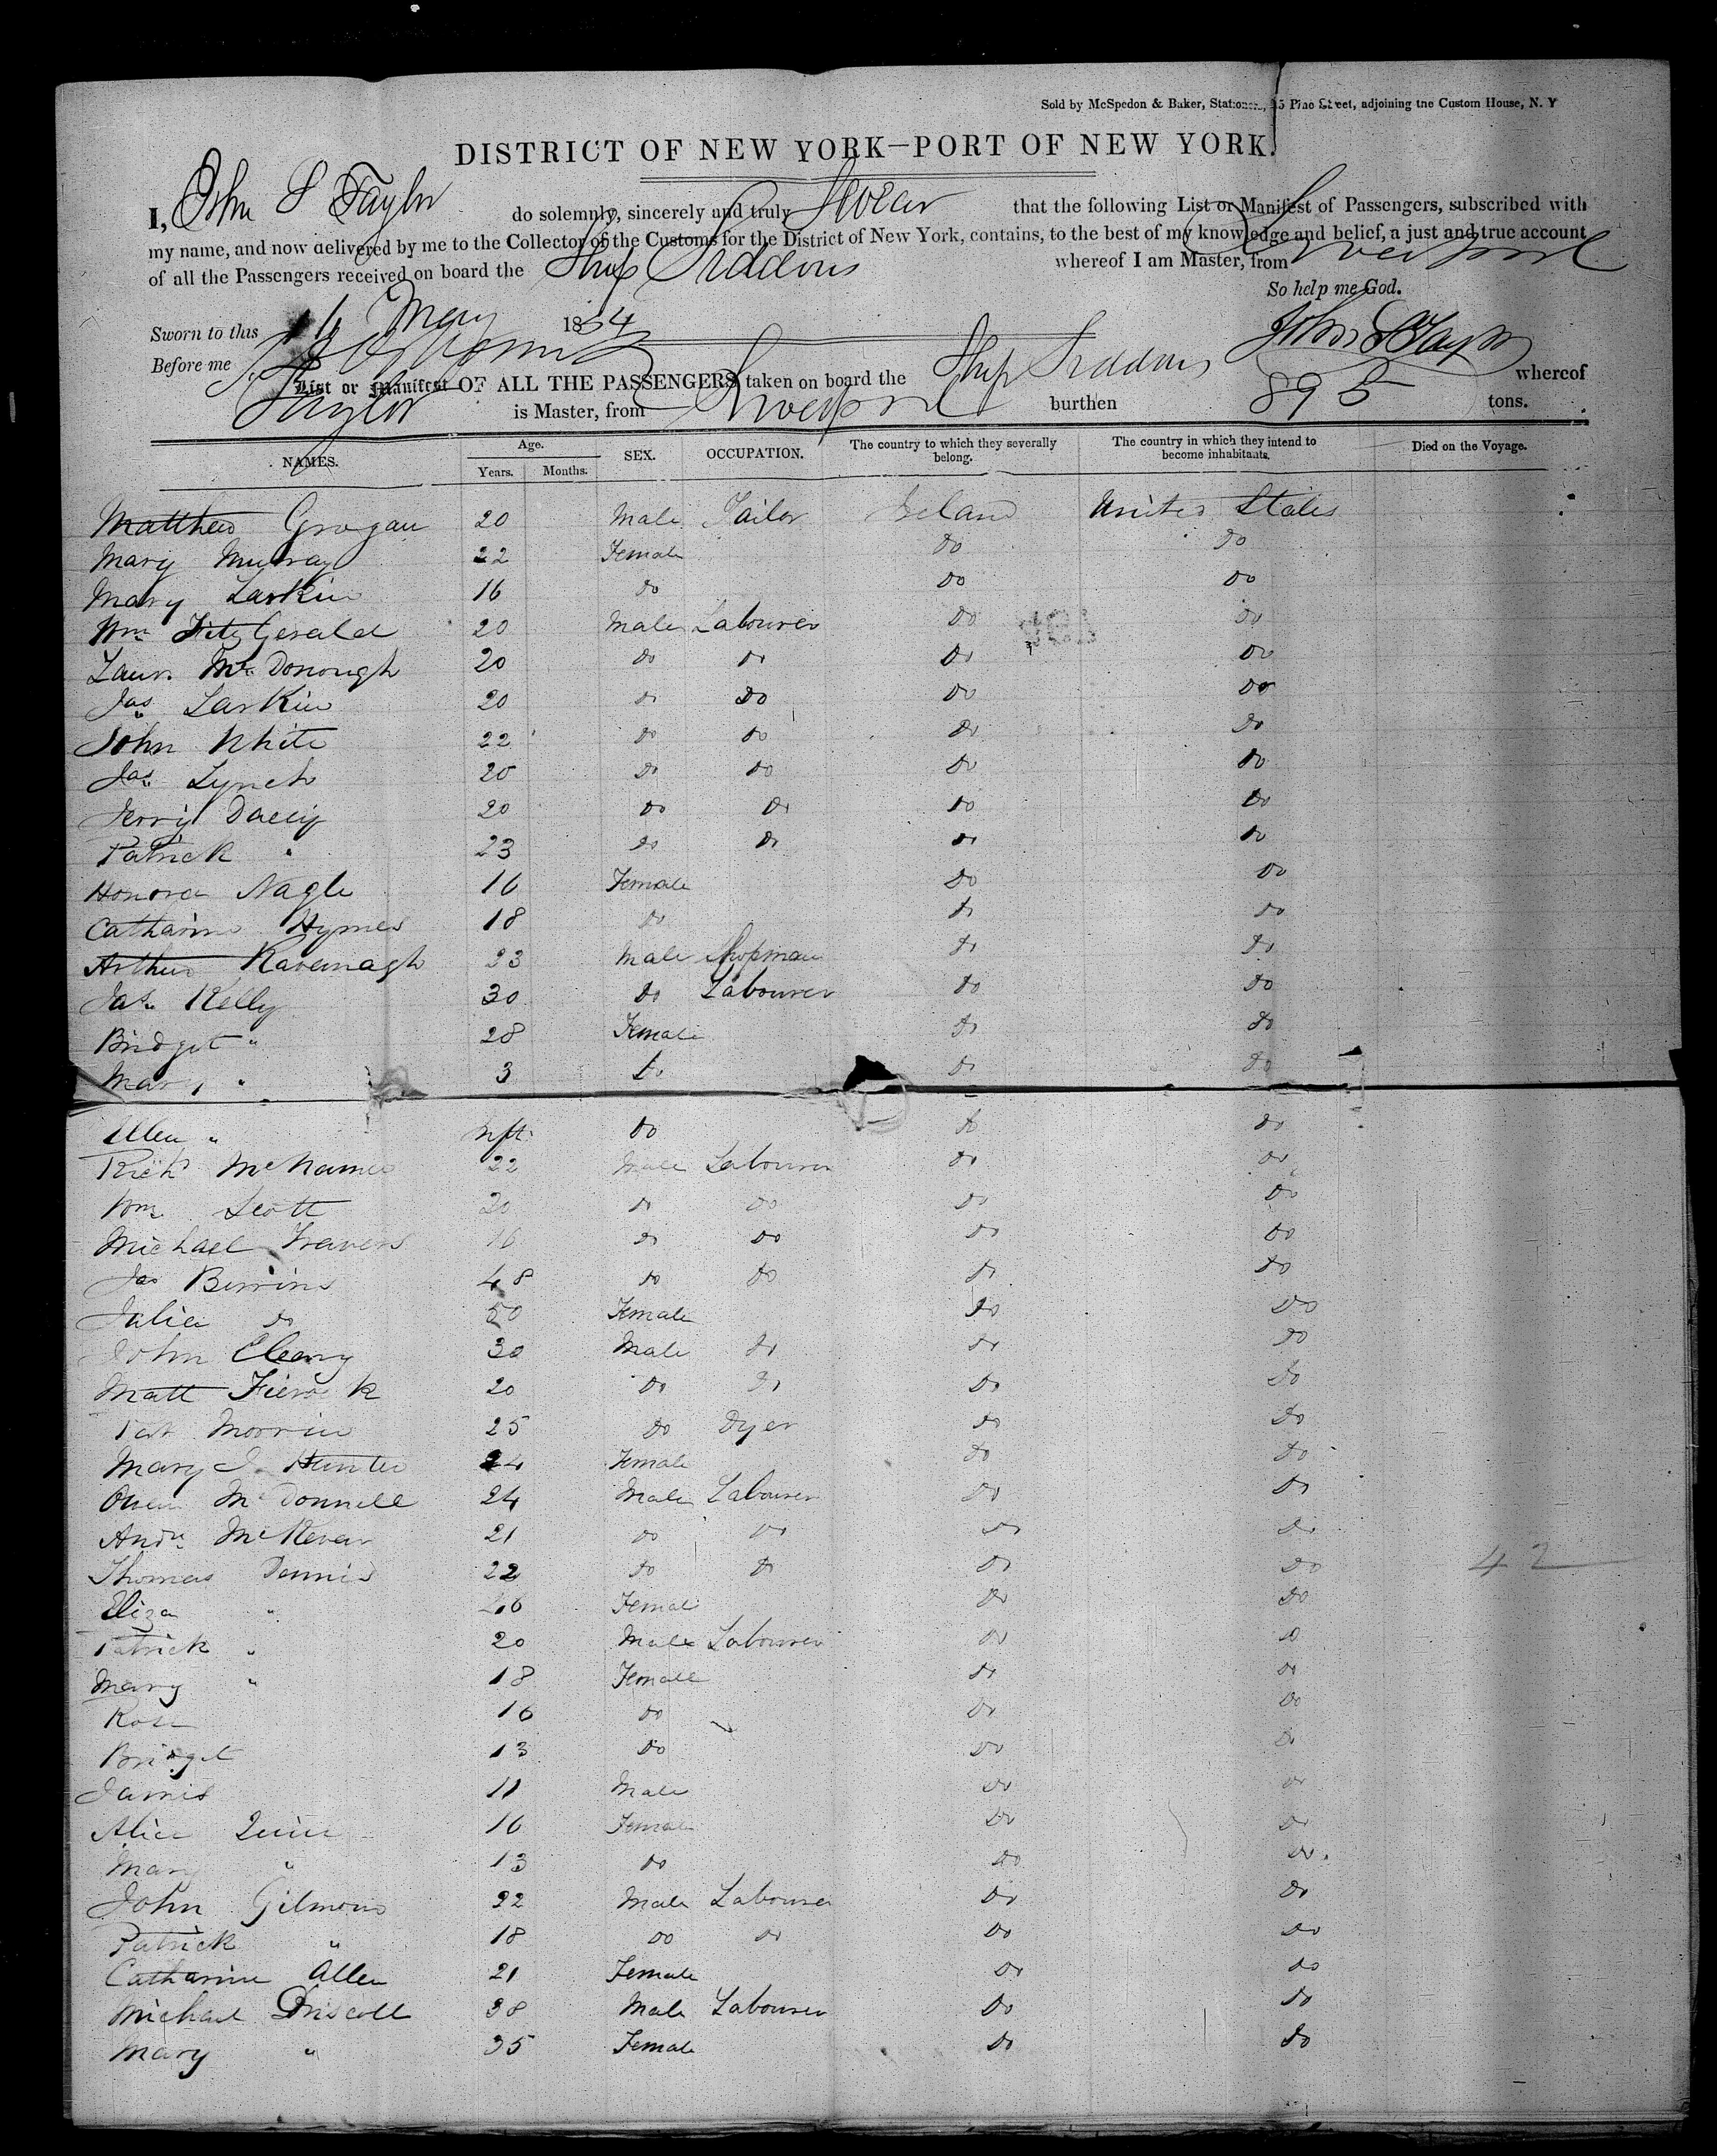 Sold by McSpedon & Baker, Stationers, 25 Pine Street, adjoining the Custom House, N. Y
DISTRICT OF NEW YORK—PORT OF NEW YORK.
I, John S Taylor do solemnly, sincerely and truly Swear that the following List or Manifest of Passengers, subscribed with
my name, and now delivered by me to the Collector of the Customs for the District of New York, contains, to the best of my knowledge and belief, a just and true account
of all the Passengers received on board the Ship Siddons whereof I am Master, from Liverpool
So help me God.
Sworn to this 16 May 1854
John S Taylor
Before me
List or Manifest OF ALL THE PASSENGERS taken on board the Ship Siddons whereof
Taylor is Master, from Liverpool burthen 895 tons.
NAMES. Age. Years. Months. SEX. OCCUPATION. The country to which they severally belong. The country in which they intend to become inhabitants. Died on the Voyage.
Matthew Grogan 20 Male Tailor Ireland United States
Mary Murray 22 Female do do
Mary Larkin 16 do do do
Wm FitzGerald 20 Male Labourer do do
Laur. McDonough 20 do do do do
Jas Larkin 20 do do do do
John White 22 do do do do
Jas Lynch 20 do do do do
Jerry Dacey 20 do do do do
Patrick " 23 do do do do
Honora Nagle 16 Female do do
Catharine Hymes 18 do do do
Arthur Kavanagh 23 Male Shopman do do
Jas Kelly 30 do Labourer do do
Bridget " 28 Female do do
Mary " 3 do do do
Ellen " Inft do do do
Richd McNamee 22 Male Labourer do do
Wm Scott 20 do do do do
Michael Travers 16 do do do do
Jas Berrins 48 do do do do
Julia do 50 Female do do
John Cleary 30 Male do do do
Matt 20 do do do do
Pat Morrin 25 do Dyer do do
Mary J. Hunter 24 Female do do
Owen McDonnell 24 Male Labourer do do
Andw McKever 21 do do do do
Thomas Dennis 22 do do do do
Eliza " 46 Female do do
Patrick " 20 Male Labourer do do
Mary " 18 Female do do
Rose 16 do do do
Bridget 13 do do do
James 11 Male do do
Alice Quinn 16 Female do do
Mary " 13 do do do
John Gilmour 22 Male Labourer do do
Patrick " 18 do do do do
Catharine Allen 21 Female do do
Michael Driscoll 38 Male Labourer do do
Mary " 35 Female do do
42